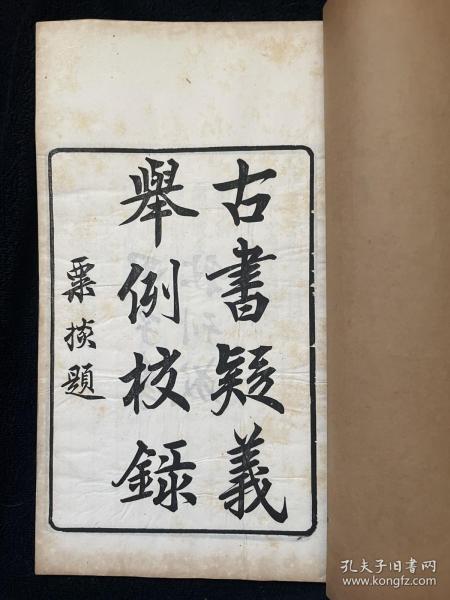 古書疑義
舉例校錄
粟掞題
孔夫子旧书网
www.kongfz.com